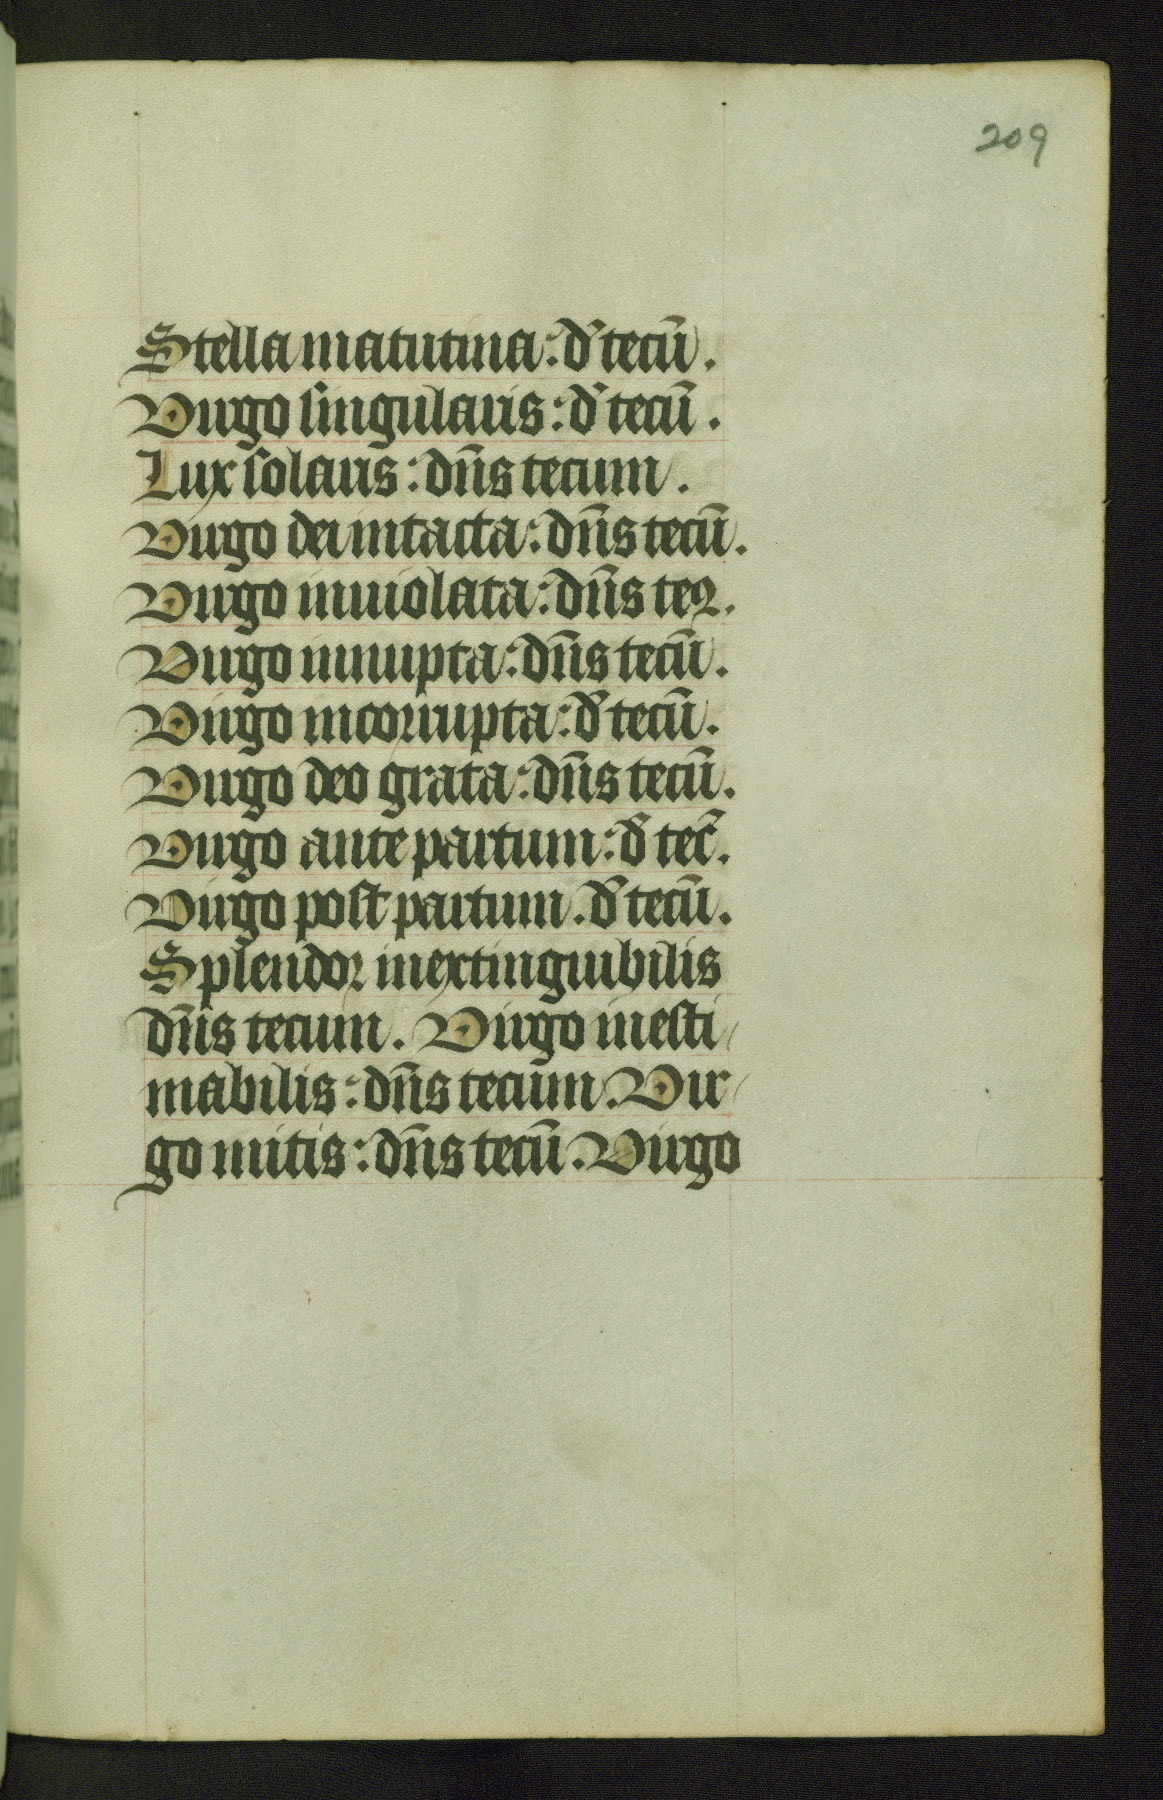 209
Stella matutina: d̄ tecū.
Virgo singularis: d̄ tecū.
Lux solaris: dn̄s tecum.
Virgo dei intacta: dn̄s tecū.
Virgo inuiolata: dn̄s teꝝ.
Virgo innupta: dn̄s tecū.
Virgo incorrupta: d̄ tecū.
Virgo deo grata: dn̄s tecū.
Virgo ante partum: d̄ tec̄.
Virgo post partum. d̄ tecū.
Splendor inextinguibilis
dn̄s tecum. Virgo inesti/
mabilis: dn̄s tecum. Vir/
go mitis: dn̄s tecū. Virgo